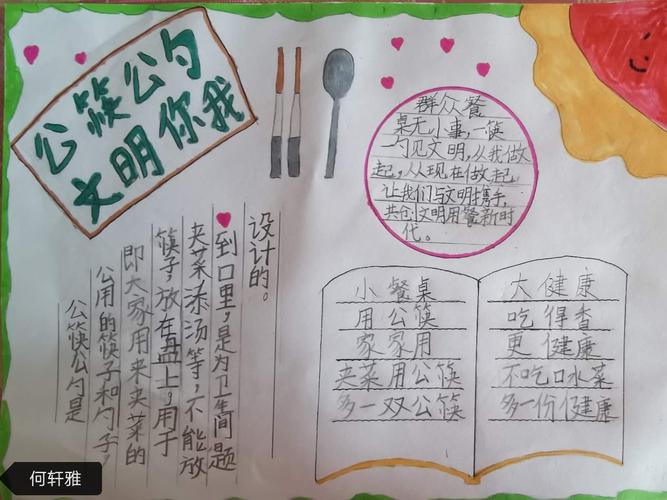 公筷公勺
文明你我
群众餐
桌无小事,一筷
勺见文明,从我做
起,从现在做起,
让我们与文明携手,
共创文明用餐新时
代。
公筷公勺是
公用的筷子和勺子,
即大家用来夹菜的
筷子,放在盘上,用于
夹菜添汤等,不能放
到口里,是为卫生间题
设计的。
小餐桌
用公筷
家家用
夹菜用公筷
多一双公筷
大健康
吃得香
更健康
不吃口水菜
多一份健康
何轩雅